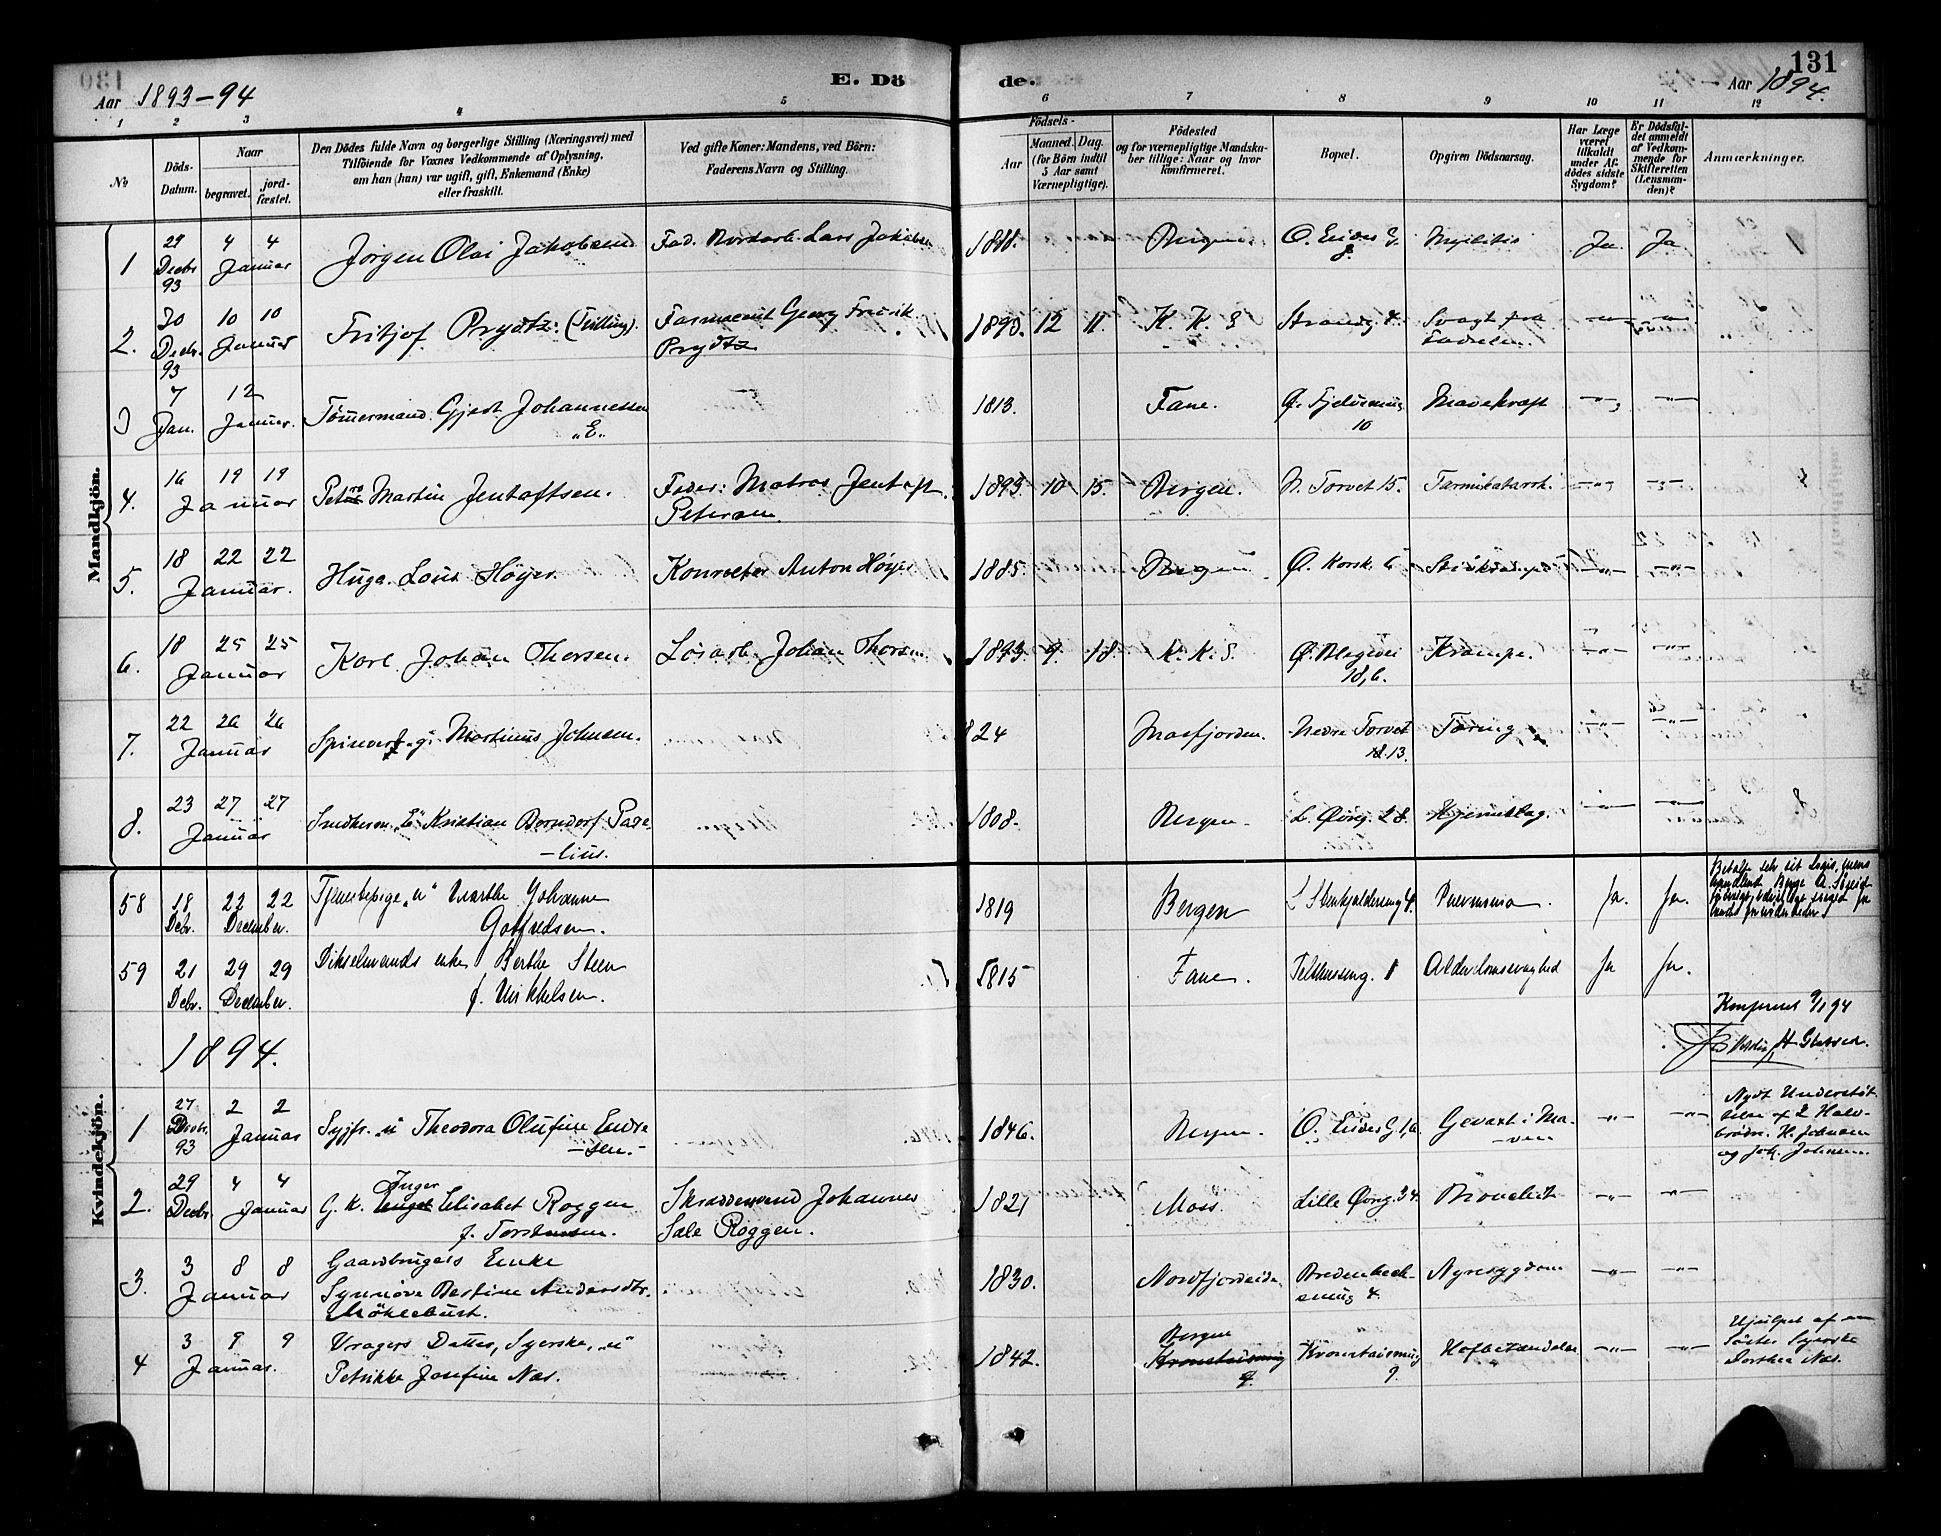 Aar 1893-94
E. Dö de.
131
Aar 1894.
1 2 3 4 5 6 7 8 9 10 11 12
No
Döds-Datum.
Naar
begravet.
jord-fæstet.
Den Dödes fulde Navn og borgerlige Stilling (Næringsvei) med
Tilföiende for Voxnes Vedkommende af Oplysning,
om han (hun) var ugift, gift, Enkemand (Enke)
eller fraskilt.
Ved gifte Koner: Mandens, ved Börn:
Faderens Navn og Stilling.
Födsels-
Aar
Maaned. Dag.
(for Börn indtil
5 Aar samt
Værnepligtige).
Födested
og for værnepligtige Mandska-
ber tillige: Naar og hvor
konfirmeret.
Bopæl.
Opgiven Dödsaarsag.
Har Læge
været
tilkaldt
under Af-
dödes sidste
Sygdom?
Er Dödsfal-
det anmeldt
af Vedkom-
mende for
Skifteretten
(Lensman-
den)?
Anmærkninger.
Mandkjön.
1 29 Decbr 93 4 4 Januar Jørgen Olai Jakobsen Fad. Lars Jakobsen Bergen Myelitis Ja. Ja.
2. 30 Decbr. 93 10 10 Januar Fritjof Prydtz. (Tvilling). Farmaceut Georg Fredrik
Prydtz 1890. 12 11 K. K. S Strandg 4. Svagt fra
Fødselen.
3 7 Jan. 12 Januar. Tømmermand Gjert Johannessen
"E" 1813. Fane. Ø. 10 Mavekræft
4. 16 19 19 Januar Petro Martin Jentoftsen. Fader: Matros Jentoft
Petersen. 1893. 10 15. Bergen. N. Torvet 15. Tarmkatarrh.
5. 18 22 22 Januar. Hugo Louis Høyer. Anton Høyer 1885. Bergen Ø. Korsk. 6
6. 18 25 25 Januar Karl Johan Thorsen. Løsarb. Johan Thorsen 1893. 9. 18. K. K. S. Ø. Blegevei
18,6. Krampe.
7. 22 26 26 Januar Martinus Johnsen. 1824 Masfjorden. Nedre Torvet
13. Tæring
8. 23 27 27 Januar "E" Kristian Borndorf Paae-
-lius. 1808. Bergen. L. Øvrg. 28. Hjerneslag.
Kvindekjön.
58 18 Debr. 22 22 December. Tjenestepige "u" Marthe Johanne
Gotfredsen. 1819 Bergen 4. Pneumonia Ja. Ja.
59 21 Debr. 29 29 December. enke Berthe Steen
f. Mikkelsen. 1815 Fane. 1 Alderdomssvaghed Ja Ja.
Konfereret 9/1 94
1894.
1 27 Decbr. 93 2 2 Januar Syjfr. "u" Theodora Olufine Endre-
-sen. 1846. Bergen. Gevæxt i Ma-
-ven Nydt Understøt-
telse af 2 Halv-
brødre. H. Johnsen
og Joh. Johnsen.
2. 29 Decbr. 4 4 Januar G. K. Inger Elisabet Roggen
f. Skræddersvend Johannes
Sale Roggen. 1821 Moss. Lille Øvrg. 34. Bronchit
3. 3 8 8 Januar Gaardbrugers Enke
Synnøve Bertine Andersdtr.
Møklebust. 1830. Nordfjordeide Bredenbeck-
smug 4. Nyresygdom
4 3 9 9 Januar. Vragers Datter, Syerske, "u"
Petrikke Josefine Næs. 1842. Bergen
9. 9. Hofbetændelse Hjulpet af en
Søster Syerske
Dorthea Næs.